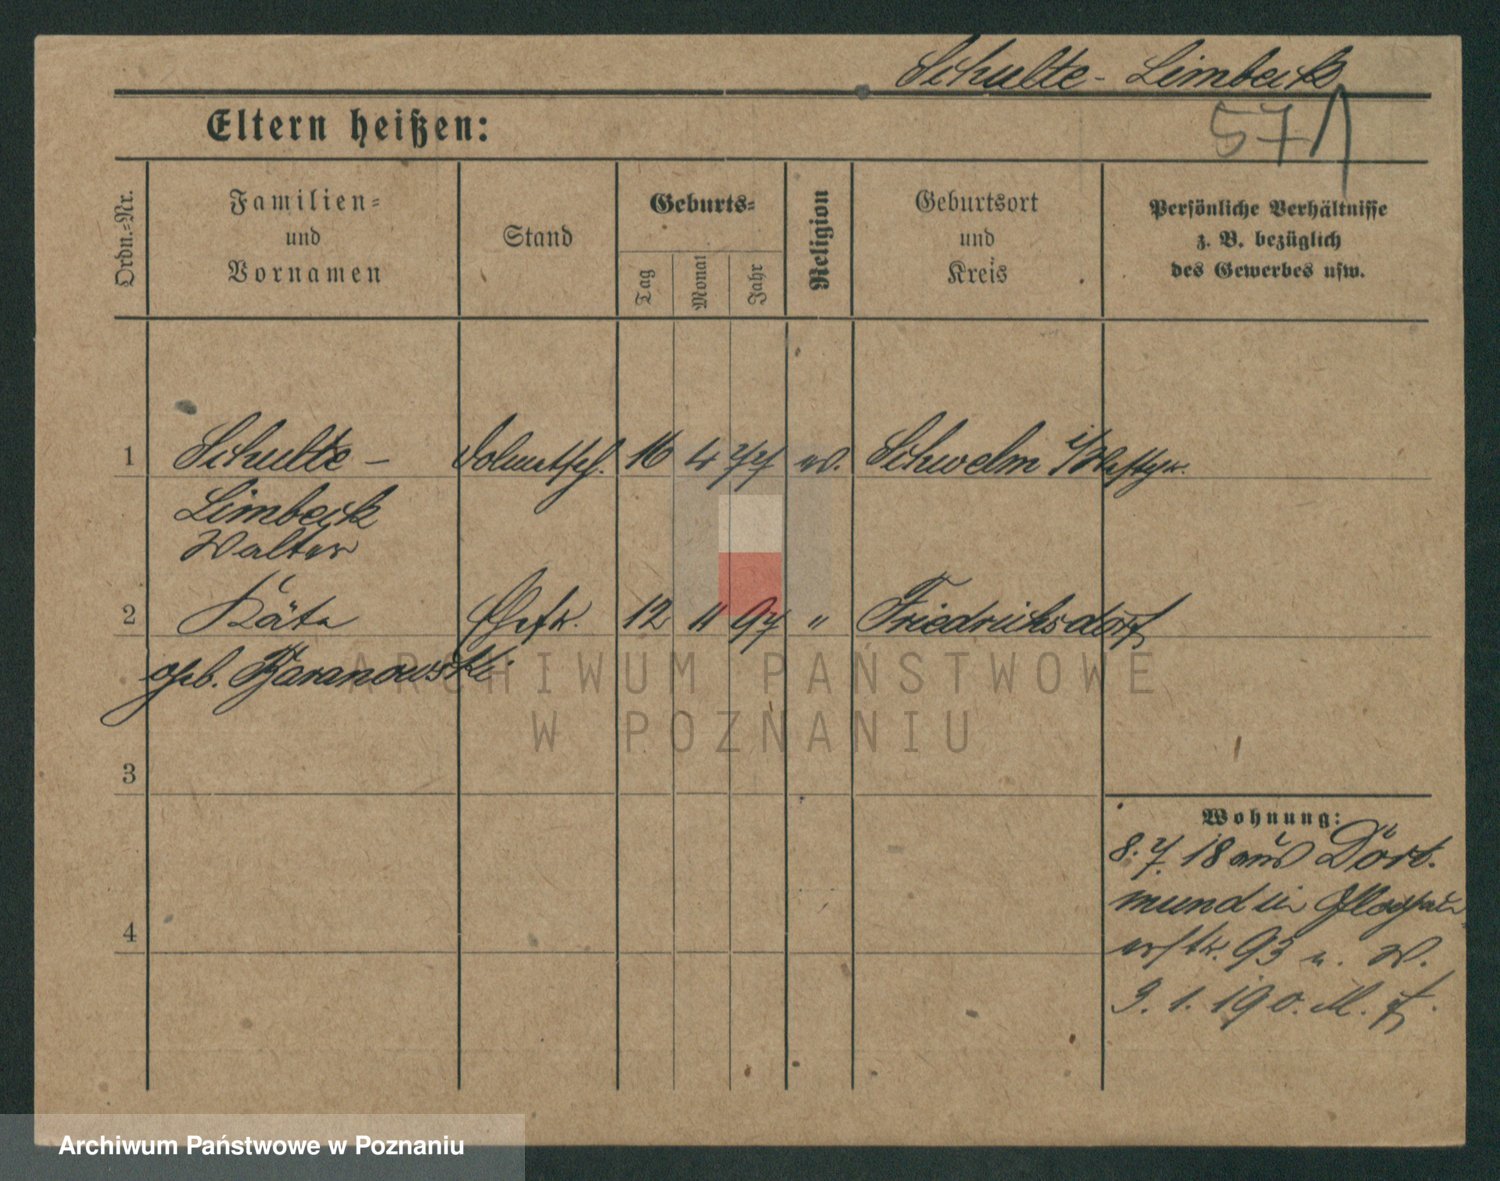 Schulte-Limbeck
571
Eltern heißen:
Ordn.-Nr.
Familien-
und
Vornamen
Stand
Geburts-
Tag
Monat
Jahr
Religion
Geburtsort
und
Kreis
Persönliche Verhältnisse
z. B. bezüglich
des Gewerbes usw.
1 Schulte- Dolmetsch. 16 4 77 ev. Schwelm i/Westf.
Limbeck
Walter
2 Käte Ehefr. 12 11 97 " Friedrichsdorf
geb. Baranowski
3
4
Wohnung:
8. 7. 18 aus Dort-
mund in Glogau-
erstr. 93 u. W.
3. 1. 19 o. M. f.
ARCHIWUM PAŃSTWOWE
W POZNANIU
Archiwum Państwowe w Poznaniu